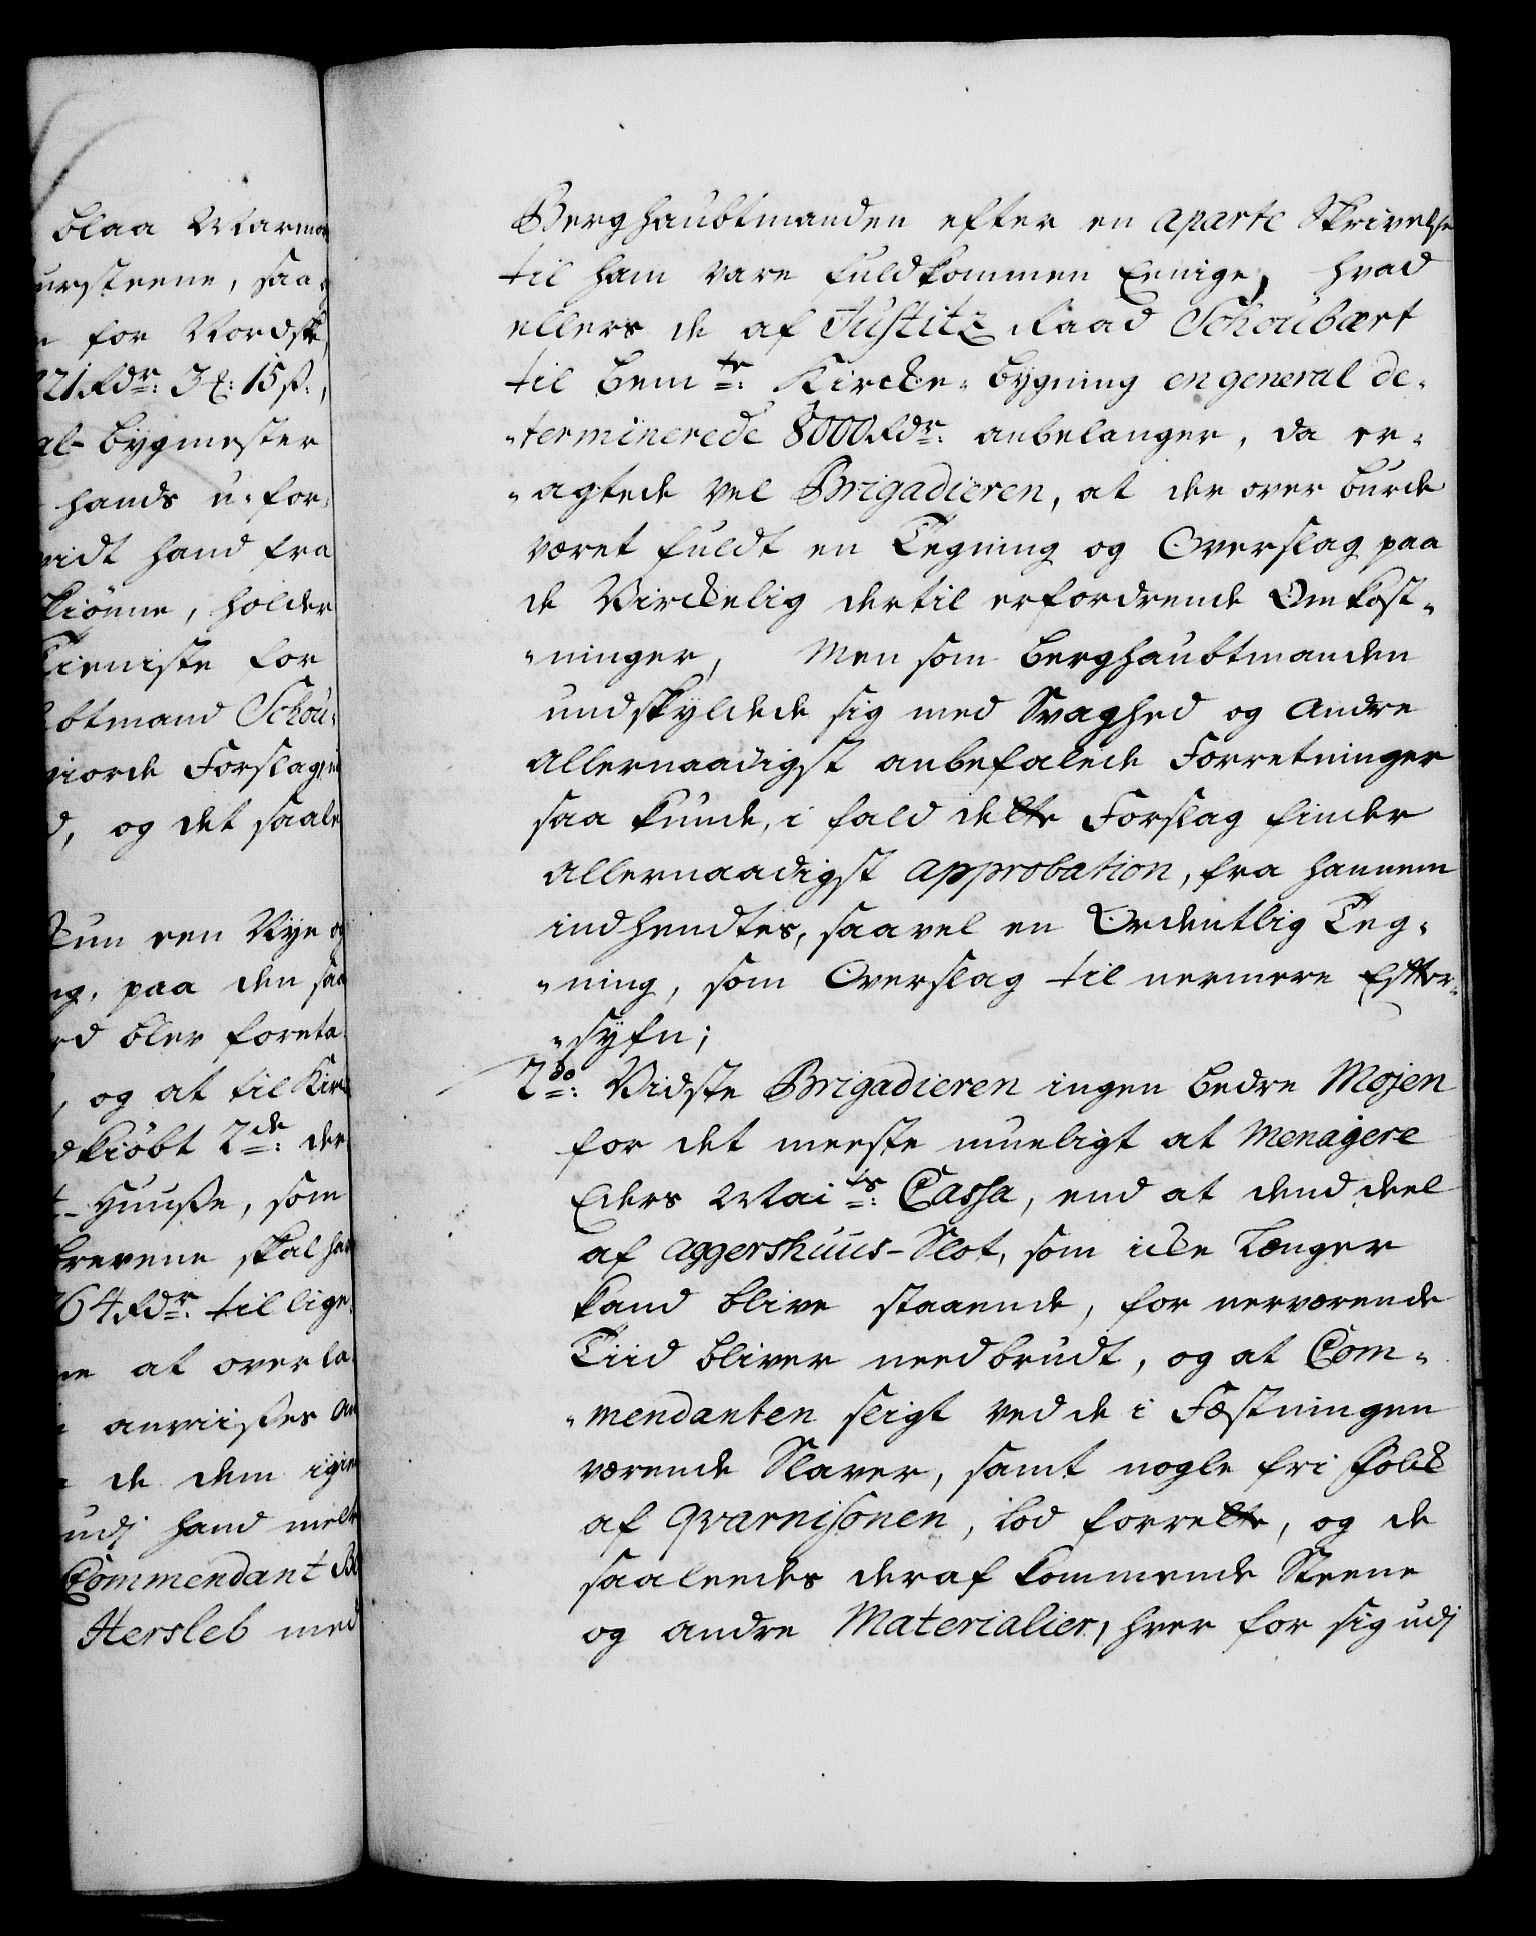 blaa Marmor
ursteene, saa
for Nordsk
21 Rdr: 3 ℔: 15 ß:,
al-bygmester
hands u-for-
vidt hand fra
kiönne, holder
Tieniste for
btmand Schou-
giorde Forslag
d, og det saale
Kun een Nye og
ng, paa den saa
ed blev foreta
, og at til Kir
dkiöbt 2de: de
t-Huuse, som
brevene skal ha
64 Rdr: tillige
ne at overla
anviises an
de dem igien
udj hand
Commendant
Hersleb med
Berghaubtmanden efter en aparte Skrivelse
til ham vare fuldkommen Eenige, hvad
ellers de af Justitz Raad Schoubært
til bemte: Kircke-bygning en general de-
-terminerede 8000 Rdr: anbelanger, da er-
-agtede vel Brigadieren, at der over burde
været fuldt en Tegning og Overslag paa
de Virckelig dertil erfordrende Omkost-
-ninger, Men som Berghaubtmanden
undskyldede sig med Svaghed og andre
allernaadigst anbefalede Forretninger
saa kunde, i fald dette Forslag finder
allernaadigst approbation, fra hannem
indhendtes, saavel en Ordentlig Teg-
-ning, som Overslag til nermere Efter-
-syfn;
2do: Vidste Brigadieren ingen bedre Mojen
for det meeste mueligt at Menagere
Eders Maits: Cassa, end at dend deel
af Aggershuus-Slot, som icke længer
kand blive staaende, for nerværende
Tiid bliver needbrudt, og at Com-
-mendanten seigt ved de i Fæstningen
værende Slaver, samt nogle fri Folck
af Qvarnisonen, lod forrette, og de
saaleedes deraf kommende Steene
og andre Materialier, hver for sig udj